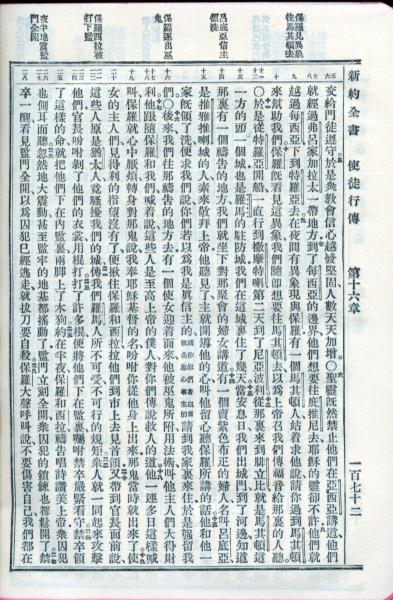 新約全書 使徒行傳 第十六章 一百七十二
保羅見異象
往馬其頓去
呂底亞信主
領洗
保羅逐出巫
鬼
保羅西拉被
打下監
夜半地震監
門全開
交給門徒遵守於是衆教會信心越發堅固人數天天加增○聖靈既然禁止他們在亞西亞講道他們
就經過弗呂家加拉太一帶地方到了每西亞的邊界他們想要往庇推尼去耶穌的靈卻不許他們就
越過每西亞下到特羅亞去在夜間有異象現與保羅有一個馬其頓人站着求他說請你過到馬其頓
來幫助我們保羅既看見這異象我們隨即想要往馬其頓去以為上帝召我們傳福音給那裏的人聽
○於是從特羅亞開船一直行到撒摩特喇第二天到了尼亞波利從那裏來到腓立比就是馬其頓這
一方的頭一個城也是羅馬的駐防城我們在這城裏住了幾天當安息日我們出城門到了河邊知道
那裏有一個禱告的地方我們就坐下對那聚會的婦女講道有一個賣紫色布疋的婦人名叫呂底亞
是推雅推喇城的人素來敬拜上帝他聽見了主就開導他的心叫他留心聽保羅所講的話他和他一
家既領了洗便求我們說你們若以為我是真信主的請到我家裏來住於是強留我
們○後來我們往那禱告的地方去有一個使女迎着面來他被巫鬼所附用法術叫他主人們大得財
利他跟隨保羅和我們喊着說這些人是至高上帝的僕人對你們傳說救人的道他一連多日這樣喊
叫保羅就心中厭煩轉身對那鬼說我奉耶穌基督的名吩咐你從他身上出來那鬼當時就出來了使
女的主人們見得利的指望沒有了便揪住保羅和西拉拉他們到市上去見首領又帶到官長面前說
這些人原是猶太人竟騷擾我們的城傳我們羅馬人所不可受不可行的規矩衆人就一同起來攻擊
他們官長吩咐剝了他們的衣裳用棍打打了許多棍便將他們下在監裏囑咐禁卒嚴緊看守禁卒領
了這樣的命就把他們下在內監裏兩腳上了木狗約在半夜保羅和西拉禱告唱詩讚美上帝衆囚犯
也側耳而聽忽然地大震動甚至監牢的地基都搖動了監門立刻全開衆囚犯的鎖鍊也都鬆開了禁
卒一醒看見監門全開以為囚犯已經逃走就拔刀要自殺保羅大聲呼叫說不要傷害自己我們都在